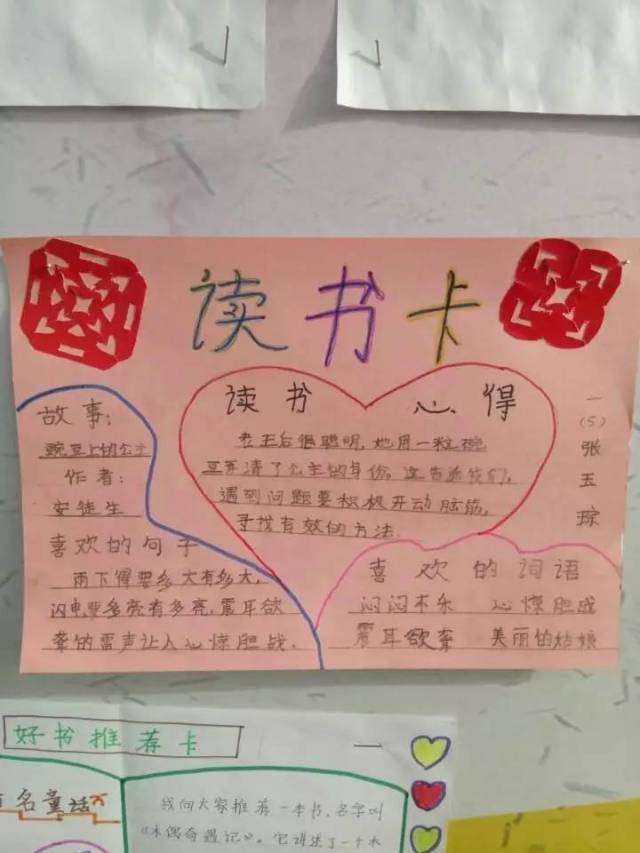 读书卡
故事:
豌豆上的公主
作者:
安徒生
喜欢的句子
雨下得要多大有多大,
闪电要多亮有多亮,震耳欲
聋的雷声让人心惊胆战.
读书 心得
老王后很聪明,她用一粒豌
豆弄清了公主的身份。这告诉我们,
遇到问题要积极开动脑筋,
寻找有效的方法
一
(5)
张
玉
琮
喜欢的词语
闷闷不乐 心惊胆战
震耳欲聋 美丽的姑娘
好书推荐卡
一
名童话
我向大家推荐一本书,名字叫
《木偶奇遇记》。它讲述了一个木